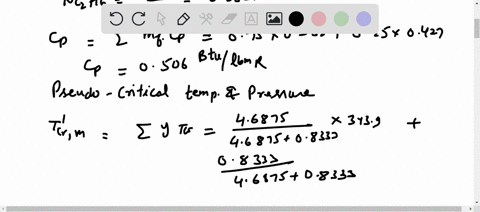 Cp = Σ mf. Cp = 0.75 x 0 25 x 0.427
Cp = 0.506 Btu/lbmR
Pseudo-Critical temp. & Pressure
T'cr,m = Σ y Tcr = 4.6875 / 4.6875 + 0.8333 x 343.9 +
0.8333 / 4.6875 + 0.8333